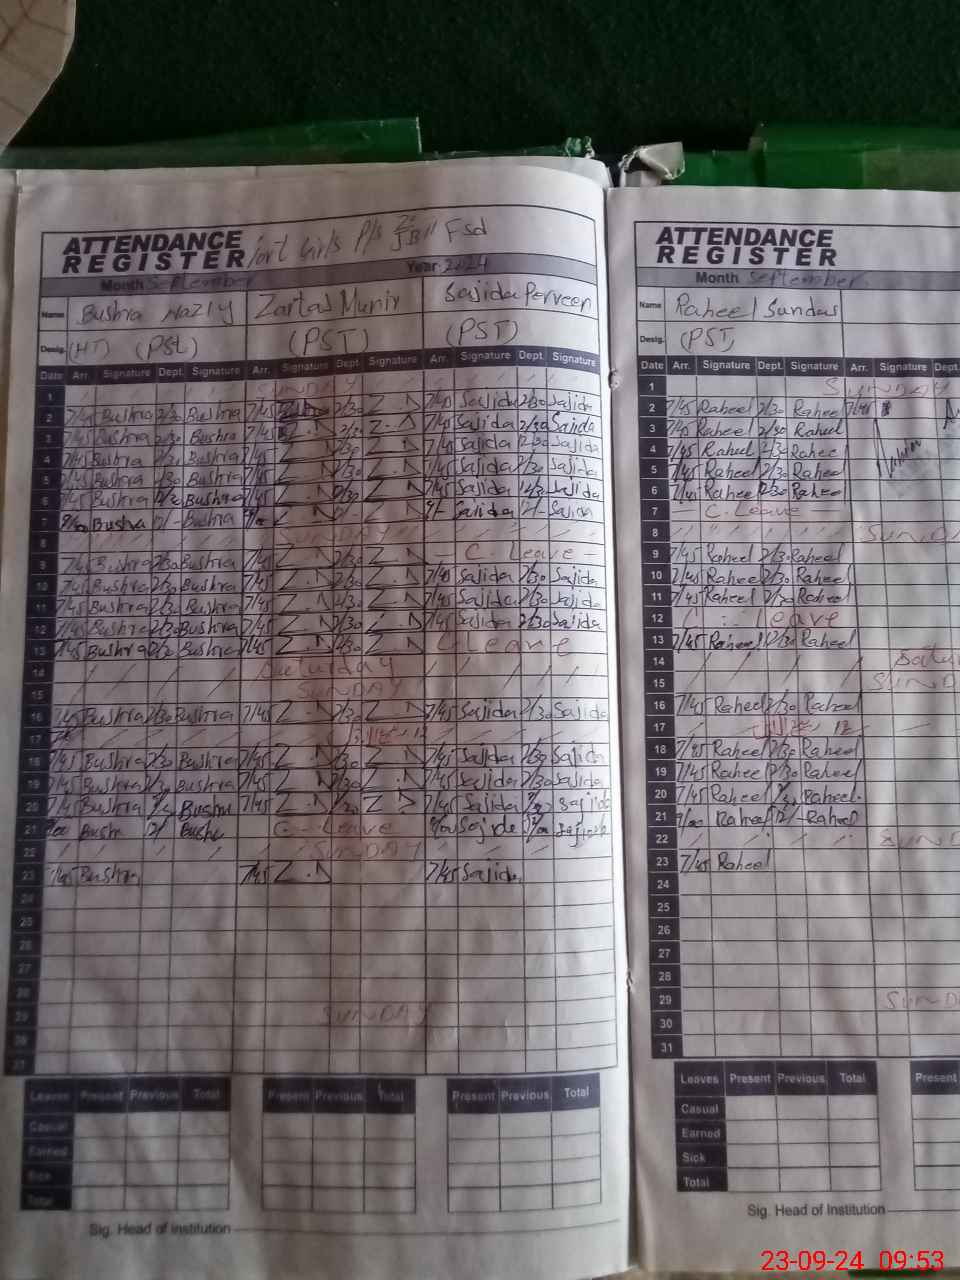 ATTENDANCE REGISTER Girls P/S Fsd
Month September Year 2024
Name Bushra Nazly Zartas Munir Sajida Perveen
Desig. (HT) (PSt) (PST) (PST)
Date Arr. Signature Dept. Signature Arr. Signature Dept. Signature Arr. Signature Dept. Signature
1 SUNDAY
2 7/45 Bushra 2/30 Bushra 7/45 2/30 Z.N 7/45 Sajida 2/30 Sajida
3 7/45 Bushra 2/30 Bushra 7/45 Z.N 2/30 Z.N 7/45 Sajida 2/30 Sajida
4 7/45 Bushra 2/30 Bushra 7/45 Z.N 2/30 Z.N 7/45 Sajida 2/30 Sajida
5 7/45 Bushra 2/30 Bushra 7/45 Z.N 2/30 Z.N 7/45 Sajida 2/30 Sajida
6 7/45 Bushra 2/30 Bushra 7/45 Z.N 2/30 Z.N 7/45 Sajida Sajida
7 8/00 Bushra 12/- Bushra Z.N 12/- Z.N Sajida 12/- Sajida
8 SUNDAY
9 7/45 Bushra 2/30 Bushra 7/45 Z.N 2/30 Z.N - C. Leave -
10 7/45 Bushra 2/30 Bushra 7/45 Z.N 2/30 Z.N 7/45 Sajida 2/30 Sajida
11 7/45 Bushra 2/30 Bushra 7/45 Z.N 2/30 Z.N 7/45 Sajida 2/30 Sajida
12 7/45 Bushra 2/30 Bushra 7/45 Z.N 2/30 Z.N 7/45 Sajida 2/30 Sajida
13 7/45 Bushra 2/30 Bushra 7/45 Z.N 2/30 Z.N C Leave
14 Saturday
15 SUNDAY
16 7/45 Bushra 2/30 Bushra 7/45 Z.N 2/30 Z.N 7/45 Sajida 2/30 Sajida
17 12
18 7/45 Bushra 2/30 Bushra 7/45 Z.N 2/30 Z.N 7/45 Sajida 2/30 Sajida
19 7/45 Bushra 2/30 Bushra 7/45 Z.N 2/30 Z.N 7/45 Sajida 2/30 Sajida
20 7/45 Bushra Bushra 7/45 Z.N Z.N 7/45 Sajida Sajida
21 Bushra 12/ Bushra C - Leave Sajida Sajida
22 SUNDAY
23 7/45 Bushra 7/45 Z.N 7/45 Sajida
24
25
26
27
28
29 SUNDAY
30
31
Leaves Present Previous Total Present Previous Total Present Previous Total
Casual
Earned
Sick
Total
Sig. Head of institution
ATTENDANCE REGISTER
Month September
Name Raheel Sundas
Desig. (PST)
Date Arr. Signature Dept. Signature Arr. Signature
1 SUNDAY
2 7/45 Raheel 2/30 Raheel 7/45
3 7/45 Raheel 2/30 Raheel
4 7/45 Raheel 2/30 Raheel
5 7/45 Raheel 2/30 Raheel
6 7/45 Raheel 2/30 Raheel
7 - C. Leave -
8 SUNDA
9 7/45 Raheel 2/30 Raheel
10 7/45 Raheel 2/30 Raheel
11 7/45 Raheel 2/30 Raheel
12 C Leave
13 7/45 Raheel 2/30 Raheel
14 Satu
15 SUND
16 7/45 Raheel 2/30 Raheel
17 12
18 7/45 Raheel 2/30 Raheel
19 7/45 Raheel 2/30 Raheel
20 7/45 Raheel Raheel
21 Raheel 12/- Raheel
22 SUNDA
23 7/45 Raheel
24
25
26
27
28
29 SUND
30
31
Leaves Present Previous Total Present
Casual
Earned
Sick
Total
Sig. Head of Institution
23-09-24 09:53